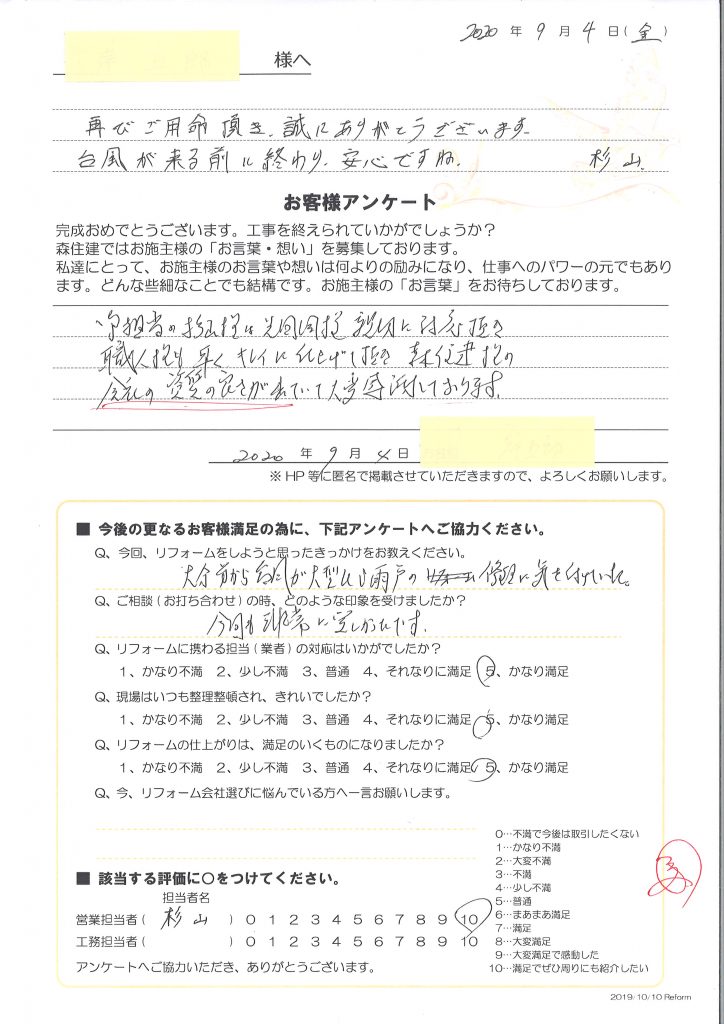 2020 年 9 月 4 日(金)
様へ
再びご用命頂き、誠にありがとうございます。
台風が来る前に終わり、安心ですね。 杉山
お客様アンケート
完成おめでとうございます。工事を終えられていかがでしょうか?
森住建ではお施主様の「お言葉・想い」を募集しております。
私達にとって、お施主様のお言葉や想いは何よりの励みになり、仕事へのパワーの元でもあり
ます。どんな些細なことでも結構です。お施主様の「お言葉」をお待ちしております。
担当の杉山様は前回同様親切に対応頂き
職人様も早くキレイに仕上げて頂き 森住建様の
会社の資質の良さが出ていて大変感謝しております。
2020 年 9 月 4 日
※HP等に匿名で掲載させていただきますので、よろしくお願いします。
■ 今後の更なるお客様満足の為に、下記アンケートへご協力ください。
Q、今回、リフォームをしようと思ったきっかけをお教えください。
大分前から台風が大型化し雨戸の 修理に気を付けていた。
Q、ご相談(お打ち合わせ)の時、どのような印象を受けましたか?
今回も非常に
Q、リフォームに携わる担当(業者)の対応はいかがでしたか?
1、かなり不満 2、少し不満 3、普通 4、それなりに満足 5、かなり満足
Q、現場はいつも整理整頓され、きれいでしたか?
1、かなり不満 2、少し不満 3、普通 4、それなりに満足 5、かなり満足
Q、リフォームの仕上がりは、満足のいくものになりましたか?
1、かなり不満 2、少し不満 3、普通 4、それなりに満足 5、かなり満足
Q、今、リフォーム会社選びに悩んでいる方へ一言お願いします。
■ 該当する評価に○をつけてください。
担当者名
営業担当者( 杉山 ) 0 1 2 3 4 5 6 7 8 9 10
工務担当者( ) 0 1 2 3 4 5 6 7 8 9 10
アンケートへご協力いただき、ありがとうございます。
0…不満で今後は取引したくない
1…かなり不満
2…大変不満
3…不満
4…少し不満
5…普通
6…まあまあ満足
7…満足
8…大変満足
9…大変満足で感動した
10…満足でぜひ周りにも紹介したい
2019/10/10 Reform